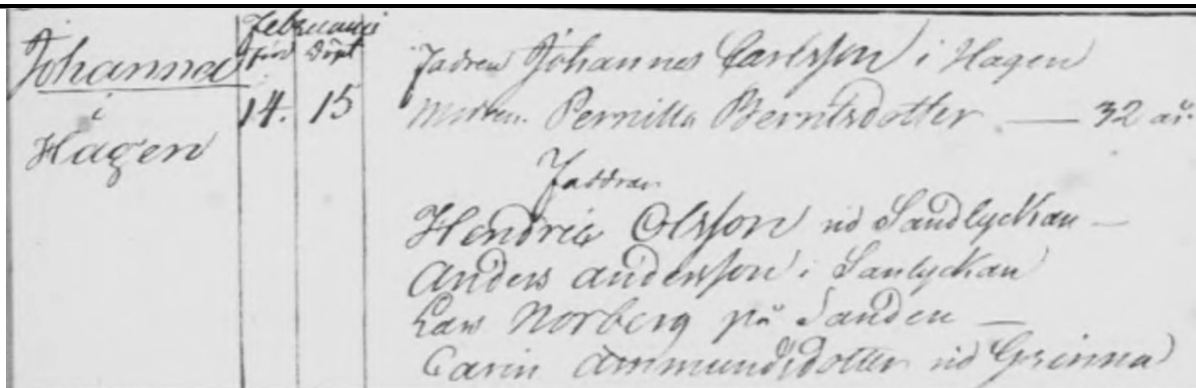 Februarii
Född Döpt
Johanna
i
Hagen
14. 15
Fadren Johannes Carlsson i Hagen
Modren Pernilla Berntsdotter — 32 år
Faddrar
Hendric Olsson vid Sandlyckan —
Anders Anderson i Sanlyckan
Lars Norberg på Sanden —
Carin Ammundsdotter vid Grinna